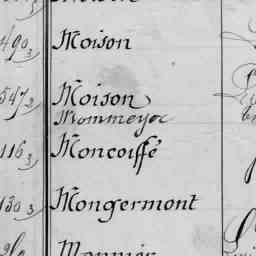 490 3 Moison
547 2 Moison
Mommeyer
116 3 Moncoiffé
130 3 Mongermont
Monnier